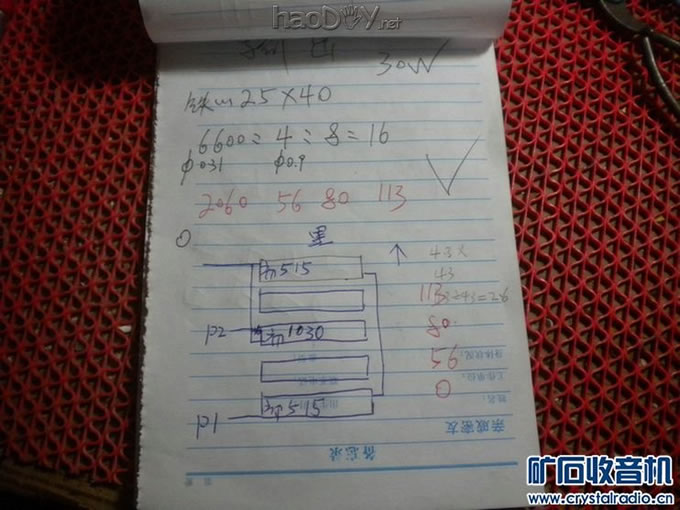 haoDIY.net
30W
铁山25×40
6600:4:8=16
φ0.31 φ0.9
2060 56 80 113
0 里
初515
P2 初1030
P1 初515
43×
43
113÷43=2.6
80
56
0
身体状况:
工作单位:
姓名:
亲眼密友
备忘录
矿石收音机
www.crystalradio.cn